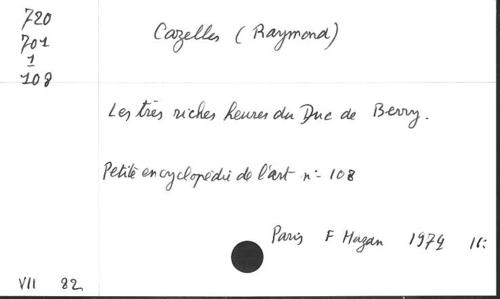 720
701
1
108
Cazelles (Raymond)
Les très riches heures du Duc de Berry.
Petite encyclopédie de l'art n:- 108
Paris F Hazan 1974
VII 82